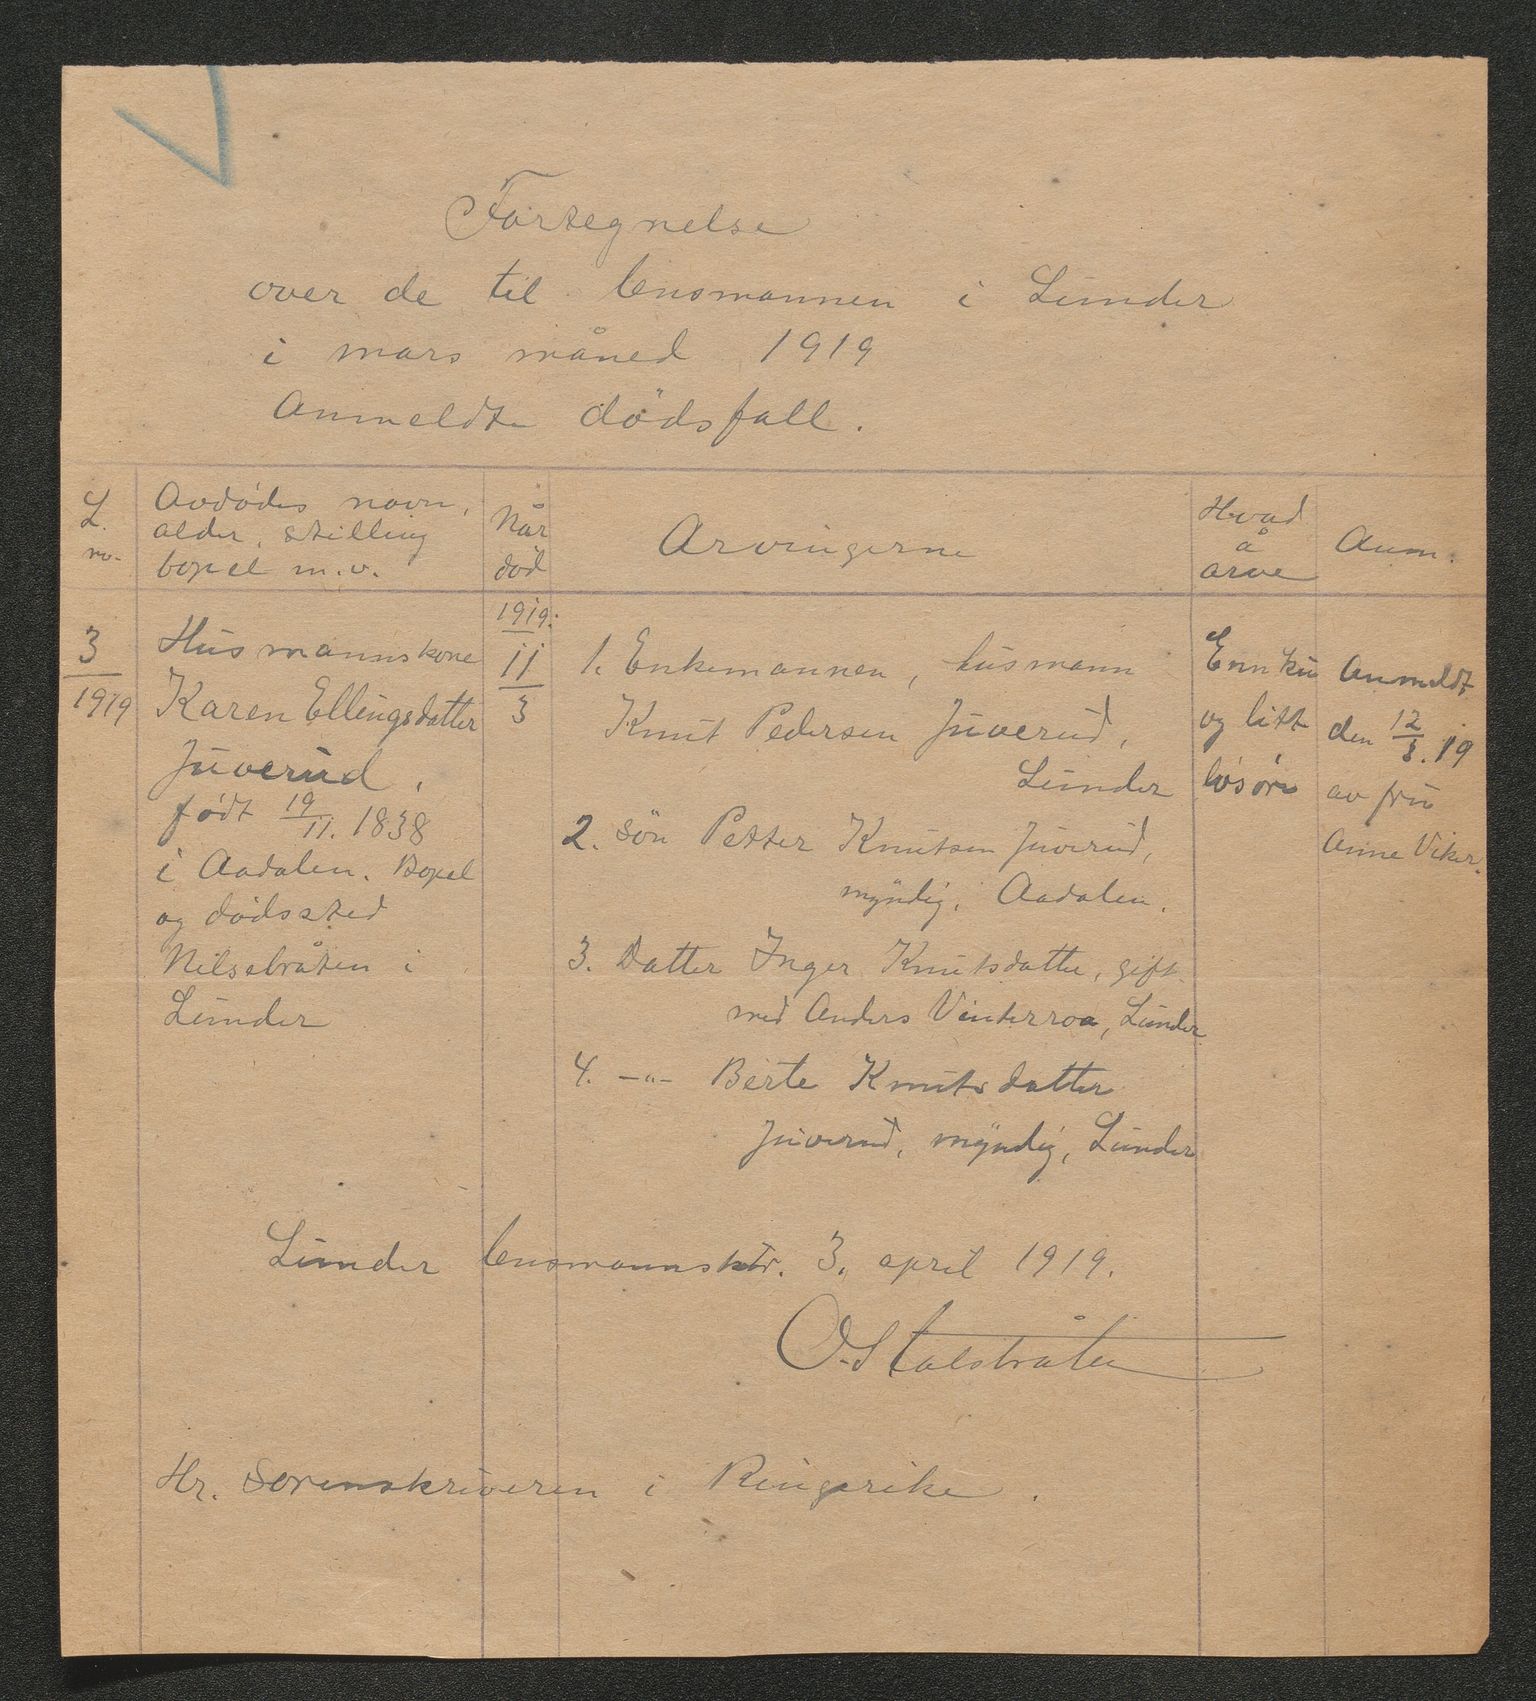 Fortegnelse
over de til lensmannen i Lunder
i mars måned 1919
anmeldte dödsfall.
L. no.
Avdödes navn,
alder, stilling
bopel m.v.
Når
död
Arvingerne
Hvad
å
arve
Anm.
3/1919
Husmannskone
Karen Ellingsdatter
Juverud,
född 19/11. 1838
i Aadalen. Bopel
og dödssted
Nilsebråten i
Lunder
1919:
11/3
1. Enkemannen, husmann
Knut Pedersen Juverud,
Lunder
2. Sön Petter Knutsen Juverud,
myndig, Aadalen.
3. Datter Inger Knutsdatter, gift
med Anders Vinterroa, Lunder
4. -"- Berte Knutsdatter
Juverud, myndig, Lunder
Enn ku
og litt
lösöre
Anmeldt
den 12/3. 19
av fru
Anne Viker.
Lunder lensmannsktr. 3. april 1919.
O. Stalsbråten
Hr. Sorenskriveren i Ringerike.